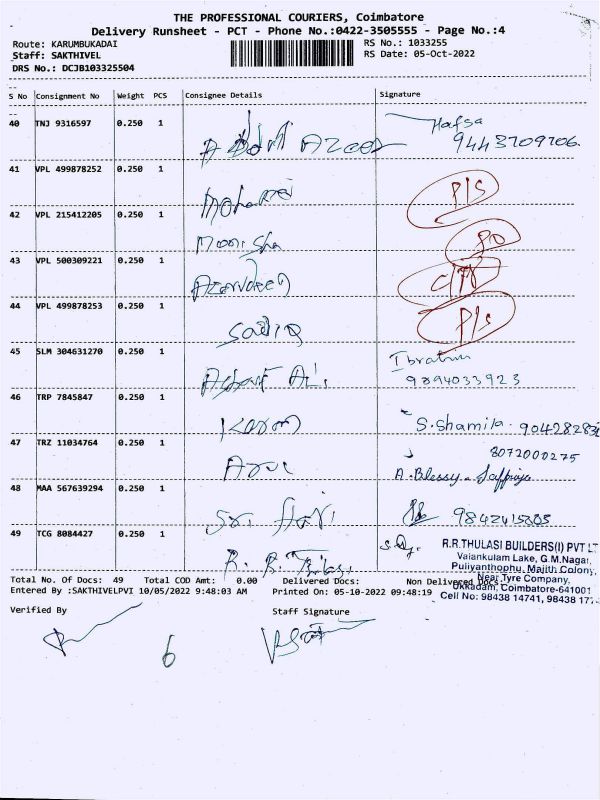 THE PROFESSIONAL COURIERS, Coimbatore
Delivery Runsheet - PCT - Phone No.:0422-3505555 - Page No.:4
Route: KARUMBUKADAI
RS No.: 1033255
Staff: SAKTHIVEL
RS Date: 05-Oct-2022
DRS No.: DCJB103325504
S No Consignment No Weight PCS Consignee Details Signature
40 TNJ 9316597 0.250 1 Hafsa
9443709706.
41 VPL 499878252 0.250 1 Mohamed P/S
42 VPL 215412205 0.250 1 Moonisha
43 VPL 500309221 0.250 1 Azarudeen
44 VPL 499878253 0.250 1 Sadiq P/S
45 SLM 304631270 0.250 1 Ashraf Ali. Ibrahim
9894033923
46 TRP 7845847 0.250 1 S. Shamila.
47 TRZ 11034764 0.250 1 Arul 8072000275
A. Blessy
48 MAA 567639294 0.250 1 Sri Hari
49 TCG 8084427 0.250 1 R. R.
R.R.THULASI BUILDERS(I) PVT LT
Vaiankulam Lake, G.M.Nagar,
Puliyanthophu, Majith Colony,
Near Tyre Company,
Ukkadam, Coimbatore-641001
Cell No: 98438 14741, 98438 17
Total No. Of Docs: 49 Total COD Amt: 0.00 Delivered Docs: Non Delivered Docs:
Entered By :SAKTHIVELPVI 10/05/2022 9:48:03 AM Printed On: 05-10-2022 09:48:19
Verified By Staff Signature
6